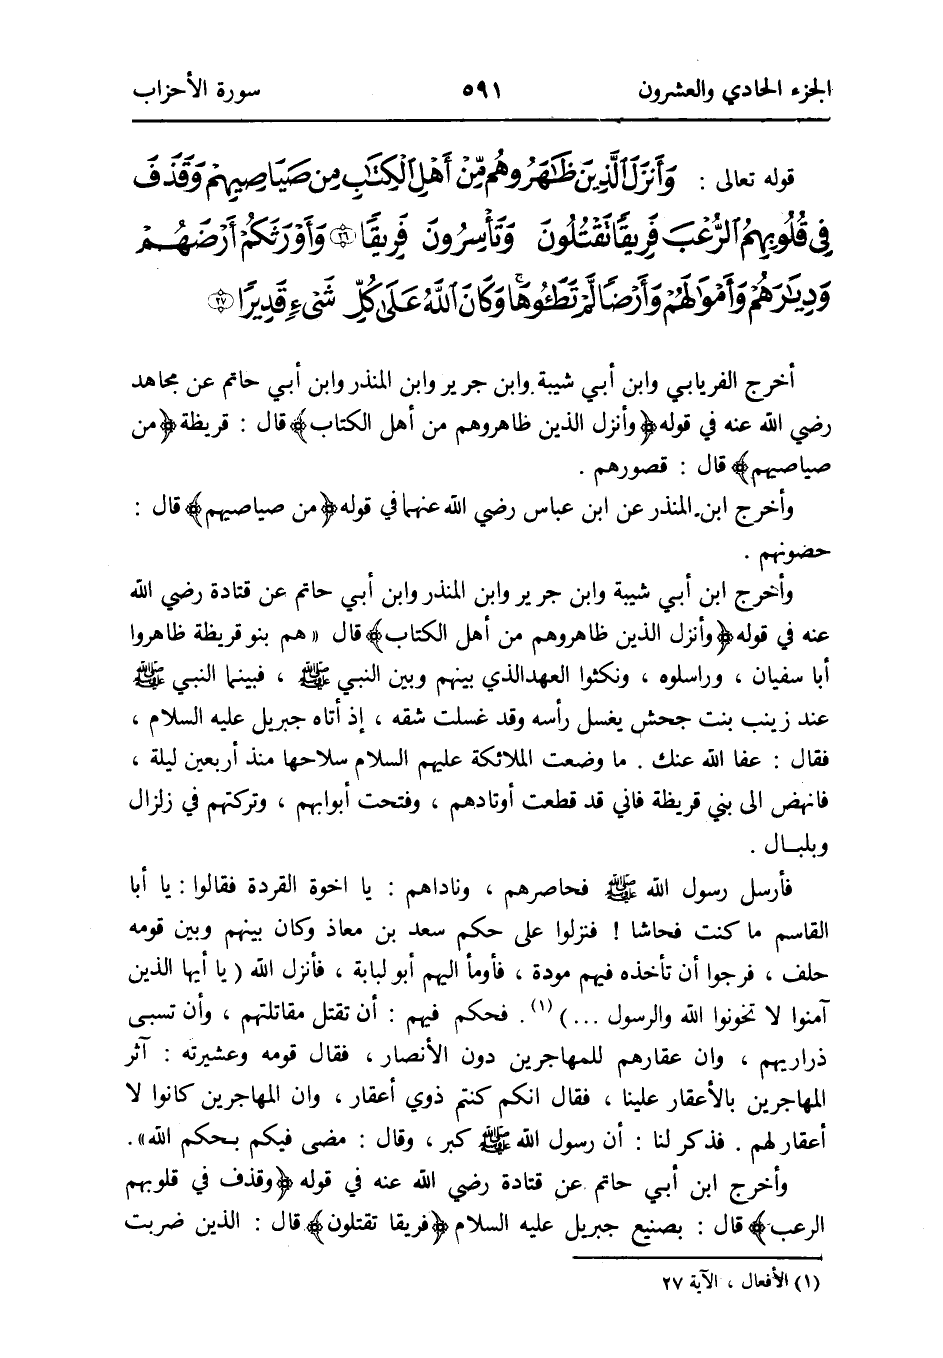 الجزء الحادي والعشرون ٥٩١ سورة الأحزاب
قوله تعالى : وَأَنزَلَ ٱلَّذِينَ ظَٰهَرُوهُم مِّنْ أَهْلِ ٱلْكِتَٰبِ مِن صَيَاصِيهِمْ وَقَذَفَ
فِى قُلُوبِهِمُ ٱلرُّعْبَ فَرِيقًا تَقْتُلُونَ وَتَأْسِرُونَ فَرِيقًا ۝٢٦ وَأَوْرَثَكُمْ أَرْضَهُمْ
وَدِيَٰرَهُمْ وَأَمْوَٰلَهُمْ وَأَرْضًا لَّمْ تَطَـُٔوهَا ۚ وَكَانَ ٱللَّهُ عَلَىٰ كُلِّ شَىْءٍ قَدِيرًا ۝٢٧
أخرج الفريابي وابن أبي شيبة وابن جرير وابن المنذر وابن أبي حاتم عن مجاهد
رضي الله عنه في قوله ﴿وأنزل الذين ظاهروهم من أهل الكتاب﴾ قال : قريظة ﴿من
صياصيهم﴾ قال : قصورهم .
وأخرج ابن المنذر عن ابن عباس رضي الله عنهما في قوله ﴿من صياصيهم﴾ قال :
حضونهم .
وأخرج ابن أبي شيبة وابن جرير وابن المنذر وابن أبي حاتم عن قتادة رضي الله
عنه في قوله ﴿وأنزل الذين ظاهروهم من أهل الكتاب﴾ قال « هم بنو قريظة ظاهروا
أبا سفيان ، وراسلوه ، ونكثوا العهد الذي بينهم وبين النبي ﷺ ، فبينما النبي ﷺ
عند زينب بنت جحش يغسل رأسه وقد غسلت شقه ، إذ أتاه جبريل عليه السلام ،
فقال : عفا الله عنك . ما وضعت الملائكة عليهم السلام سلاحها منذ أربعين ليلة ،
فانهض الى بني قريظة فاني قد قطعت أوتادهم ، وفتحت أبوابهم ، وتركتهم في زلزال
وبلبال .
فأرسل رسول الله ﷺ فحاصرهم ، وناداهم : يا اخوة القردة فقالوا : يا أبا
القاسم ما كنت فحاشا ! فنزلوا على حكم سعد بن معاذ وكان بينهم وبين قومه
حلف ، فرجوا أن تأخذه فيهم مودة ، فأومأ اليهم أبو لبابة ، فأنزل الله ( يا أيها الذين
آمنوا لا تخونوا الله والرسول ... ) (١) . فحكم فيهم : أن تقتل مقاتلتهم ، وأن تسبى
ذراريهم ، وان عقارهم للمهاجرين دون الأنصار ، فقال قومه وعشيرته : آثر
المهاجرين بالأعقار علينا ، فقال انكم كنتم ذوي أعقار ، وان المهاجرين كانوا لا
أعقار لهم . فذكر لنا : أن رسول الله ﷺ كبر ، وقال : مضى فيكم بحكم الله» .
وأخرج ابن أبي حاتم عن قتادة رضي الله عنه في قوله ﴿وقذف في قلوبهم
الرعب﴾ قال : بصنيع جبريل عليه السلام ﴿فريقا تقتلون﴾ قال : الذين ضربت
(١) الأفعال ، الآية ٢٧